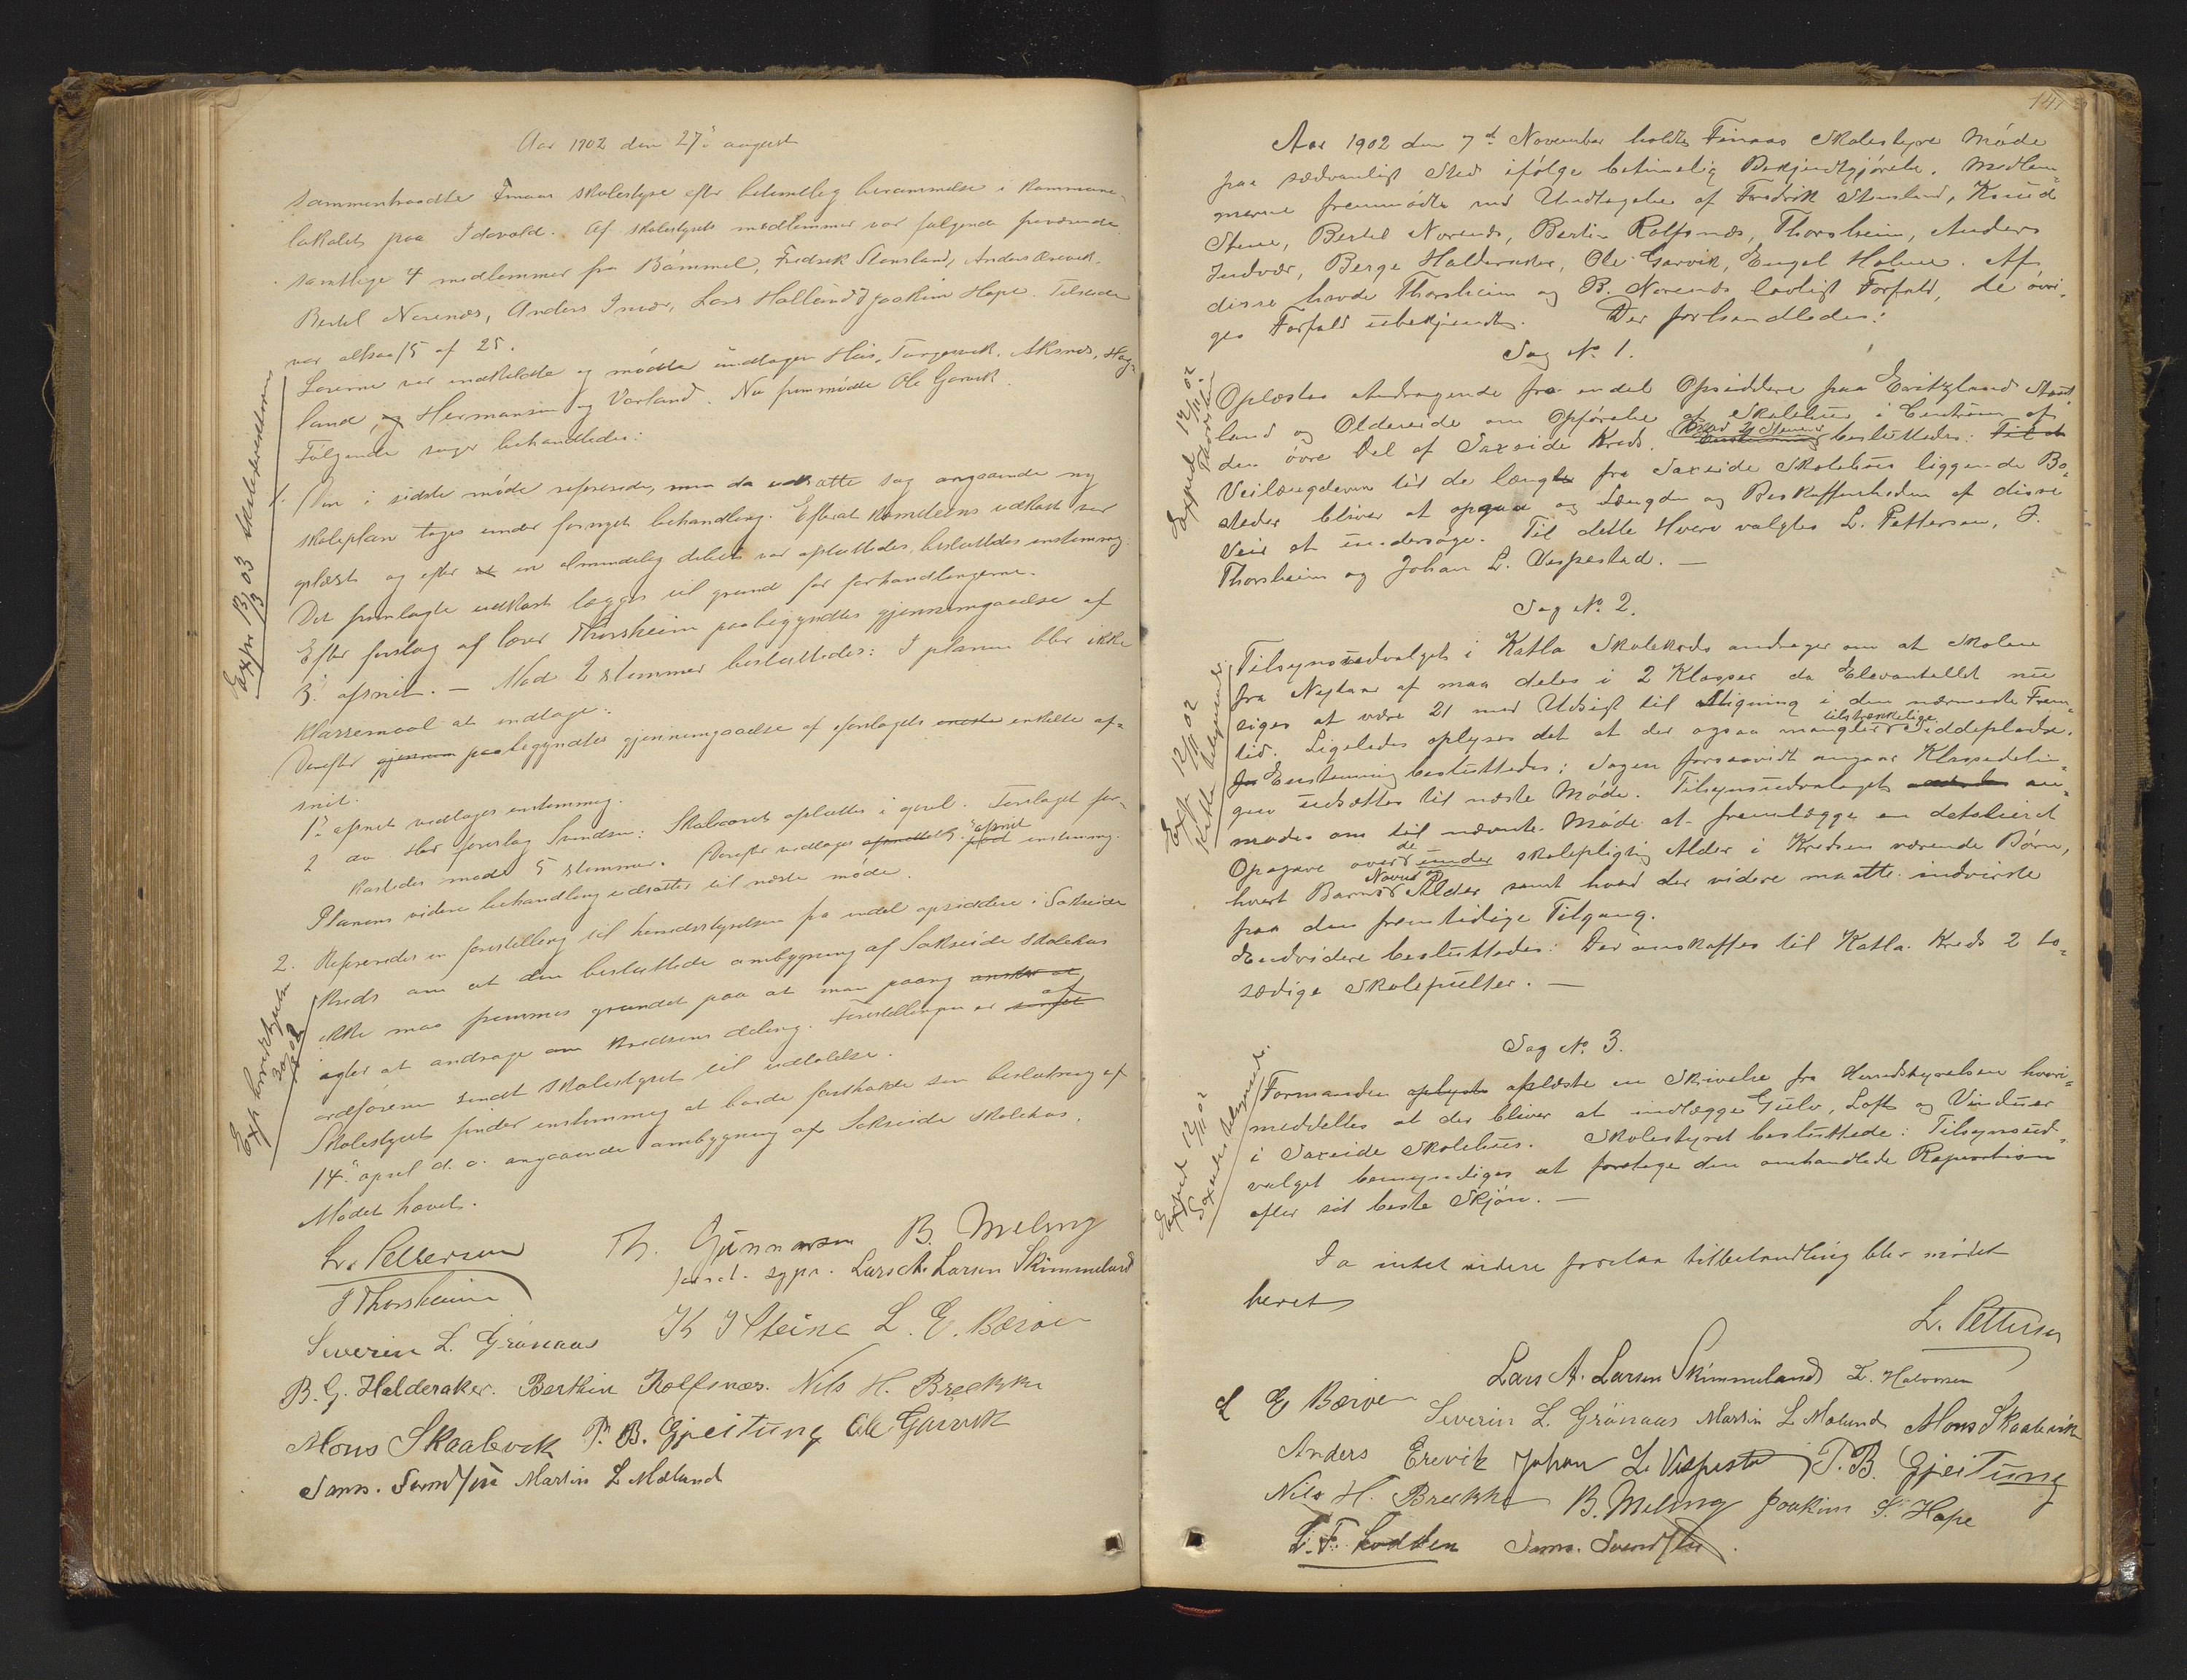 Aar 1902 den 27de august
sammentraadte Finaas skolestyre efter betimelig berammelse i kommune-
lokalet paa Idavold. Af skolestyrets medlemmer var følgende fraværende
samtlige 4 medlemmer fra Bømmel, Fredrik Stensland, Anders Ærevik,
Bertel Norenæs, Anders Invær, Lars Halleland, Joakim Hope. Tilstede
var altsaa 15 af 25.
Lærerne var indkaldte og mødte undtagen Hus, Tangevik, Aksnes, Hog-
land, og Hermansen og Vorland. Nu fremmødte Ole Garvik.
Følgende sager behandledes:
1. Den i sidste møde refererede, men da udsatte sag angaaende ny
skoleplan toges under fornyet behandling. Efterat komiteens udkast var
oplæst og efter at en almindelig debat var opsluttedes, besluttedes enstemmig.
Det fremlagte udkast lægges til grund for forhandlingerne.
Efter forslag af lærer Thorsheim paabegyndtes gjennemgaaelse af
3. afsnit. — Mod 2 stemmer besluttedes: I planen blir ikke
Klassemaal at indtage.
Derefter gjennem paabegyndtes gjennemgaaelse af forslagets eneste enkelte af-
snit.
1ste afsnit vedtages enstemmig.
2 do Her foreslog Svendsen: Skoleaaret opsættes i qvel. Forslaget for-
kastedes mod 5 stemmer. Derefter vedtoges afsnittet 2. afsnit enstemmig.
Planens videre behandling udsattes til næste møde.
2. Refereredes en forestilling til herredsstyrelsen fra endel opsiddere i Sakseide
Kreds om at den besluttede ombygning af Sakseide skolehus
ikke maa fremmes grundet paa at man paany ansker at
agter at andrage om Kredsens deling. Forestillingen er af
ordføreren sendt skolestyret til udtalelse.
Skolestyret finder enstemmig at burde fastholde sin beslutning af
14de april d. a. angaaende ombygning af Sakseide skolehus.
Mødet hævet.
L. Pettersen Th. Gunnarson B. Meling
J Thorsheim Lars A. Larsen Skimmeland
Severin L. Grønaas K J Steine L. E. Bærøe
B. G. Halderaker. Berthin Rolfsnæs. Nils H. Brekke
Mons Skaalevik P. B. Gjeitung Ole Garvik
Sams. Svendsen Martin L Mæland
Expr 13/3 03 Skoledirektøren
Exp herredsstyrelsen
30/8 02
141
Aar 1902 den 7de November holdtes Finaas Skolestyre Møde
paa sædvanligt Sted ifølge betimelig Bekjendtgjørelse. Medlem-
merne fremmødte med Undtagelse af Fredrik Stensland, Knud
Steine, Bertel Norenæs, Bertin Rolfsnæs, Thorsheim, Anders
Indvær, Berge Halderaker, Ole Garvik, Engel Holme. Af
disse havde Thorsheim og B. Norenæs lovligt Forfald, de øvri-
ges Forfald ubekjendt. Der forhandledes:
Sag No. 1.
Oplæstes Andragende fra endel Opsiddere paa Eeitzland
land og Oldereide om Opførelse af Skolehus i Centrum af
den øvre Del af Saxeide Kreds. Mod 2 Stemmer Enstemmig besluttedes: Til at
Veilængderne til de længst fra Saxeide Skolehus liggende Bo-
steder bliver at opgaa og Længden og Beskaffenheden af disse
Veie at undersøge. Til dette Hverv valgtes L. Pettersen, J.
Thorsheim og Johan L. Vespestad. —
Sag No. 2.
Tilsynsudvalget i Katla Skolekreds andrager om at Skolen
fra Nytaar af maa deles i 2 Klasser da Elevantallet nu
siges at være 21 med Udsigt til Stigning i den nærmeste Frem-
tid. Ligeledes oplyses det at der ogsaa mangler tilstrækkelige Siddepladse.
Enstemmig besluttedes: Sagen forsaavidt angaar Klassedelin-
gen udsættes til næste Møde. Tilsynsudvalget an-
modes om til nævnte Møde at fremlægge en detaljeret
Opgave over de under skolepligtig Alder i Kredsen værende Børn,
hvert Barns Navn og Alder samt hvad der videre maatte indvirke
paa den fremtidige Tilgang.
Endvidere besluttedes: Der anskaffes til Katla Kreds 2 to-
sædige Skolepulter. —
Sag No. 3.
Formanden oplyste oplæste en Skrivelse fra Herredsstyrelsen hvori
meddeltes at der bliver at indlægge Gulv, Loft og Vinduer
i Saxeide Skolehus. Skolestyret besluttede: Tilsynsud-
valget bemyndiges at foretage den omhandlede Reparation
efter sit beste Skjøn. —
Da intet videre forelaa tilbehandling blev mødet
hevet
L. Pettersen
Lars A. Larsen Skimmeland L. Halvorsen
L E Bærøe Severin L. Grønaas Martin L Mæland Mons Skaalevik
Anders Erevik Johan L. Vespestad P. B. Gjeitung
Nils H. Brekke B. Meling Joakim S. Hope
L. F. Lodden Sams. Svendsen.
Exped 12/11 02
Thorsheim
Exp. 12/11 02
Katla tilsynsudv.
Exped 12/11 02
Saxeide tilsynsudv.